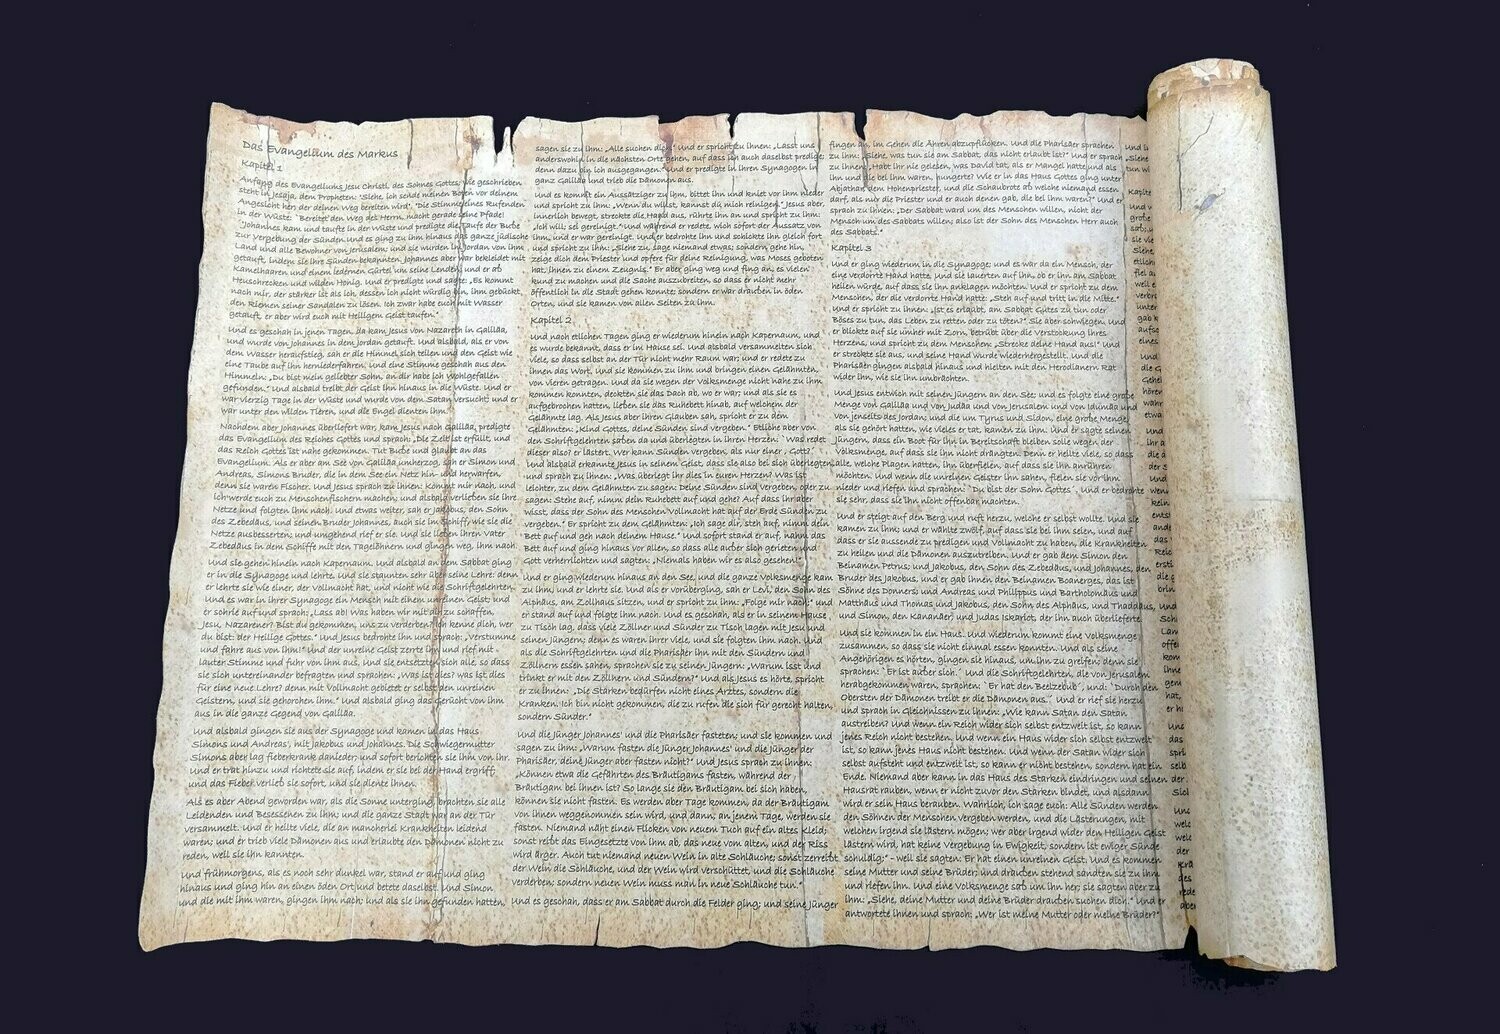 Das Evangelium des Markus
Kapitel 1
Anfang des Evangeliums Jesu Christi, des Sohnes Gottes; wie geschrieben
steht in Jesaja, dem Propheten: "Siehe, ich sende meinen Boten vor deinem
Angesicht her, der deinen Weg bereiten wird". "Die Stimme eines Rufenden
in der Wüste: Bereitet den Weg des Herrn, macht gerade seine Pfade!
Johannes kam und taufte in der Wüste und predigte die Taufe der Buße
zur Vergebung der Sünden und es ging zu ihm hinaus das ganze jüdische
Land und alle Bewohner von Jerusalem; und sie wurden im Jordan von ihm
getauft, indem sie ihre Sünden bekannten. Johannes aber war bekleidet mit
Kamelhaaren und einem ledernen Gürtel um seine Lenden; und er aß
Heuschrecken und wilden Honig. Und er predigte und sagte: „Es kommt
nach mir, der stärker ist als ich, dessen ich nicht würdig bin, ihm gebückt,
den Riemen seiner Sandalen zu lösen. Ich zwar habe euch mit Wasser
getauft, er aber wird euch mit Heiligem Geist taufen."
Und es geschah in jenen Tagen, da kam Jesus von Nazareth in Galiläa,
und wurde von Johannes in dem Jordan getauft. Und alsbald, als er von
dem Wasser heraufstieg, sah er die Himmel sich teilen und den Geist wie
eine Taube auf ihn herniederfahren. Und eine Stimme geschah aus den
Himmeln: „Du bist mein geliebter Sohn, an dir habe ich Wohlgefallen
gefunden." Und alsbald treibt der Geist ihn hinaus in die Wüste. Und er
war vierzig Tage in der Wüste und wurde von dem Satan versucht; und er
war unter den wilden Tieren, und die Engel dienten ihm.
Nachdem aber Johannes überliefert war, kam Jesus nach Galiläa, predigte
das Evangelium des Reiches Gottes und sprach: „Die Zeit ist erfüllt, und
das Reich Gottes ist nahe gekommen. Tut Buße und glaubt an das
Evangelium. Als er aber am See von Galiläa umherzog, sah er Simon und
Andreas, Simons Bruder, die in dem See ein Netz hin- und herwarfen,
denn sie waren Fischer. Und Jesus sprach zu ihnen: Kommt mir nach, und
ich werde euch zu Menschenfischern machen; und alsbald verließen sie ihre
Netze und folgten ihm nach. Und etwas weiter, sah er Jakobus, den Sohn
des Zebedäus, und seinen Bruder Johannes, auch sie im Schiff, wie sie die
Netze ausbesserten; und umgehend rief er sie. Und sie ließen ihren Vater
Zebedäus in dem Schiffe mit den Tagelöhnern und gingen weg, ihm nach.
Und sie gehen hinein nach Kapernaum. Und alsbald an dem Sabbat ging
er in die Synagoge und lehrte. Und sie staunten sehr über seine Lehre: denn
er lehrte sie wie einer, der Vollmacht hat, und nicht wie die Schriftgelehrten.
Und es war in ihrer Synagoge ein Mensch mit einem unreinen Geist; und
er schrie auf und sprach: „Lass ab! Was haben wir mit dir zu schaffen,
Jesu, Nazarener? Bist du gekommen, uns zu verderben? Ich kenne dich, wer
du bist: der Heilige Gottes." Und Jesus bedrohte ihn und sprach: „Verstumme
und fahre aus von ihm!" Und der unreine Geist zerrte ihn und rief mit
lauter Stimme und fuhr von ihm aus. Und sie entsetzten sich alle, so dass
sie sich untereinander befragten und sprachen: „Was ist dies? was ist dies
für eine neue Lehre? denn mit Vollmacht gebietet er selbst den unreinen
Geistern, und sie gehorchen ihm." Und alsbald ging das Gerücht von ihm
aus in die ganze Gegend von Galiläa.
Und alsbald gingen sie aus der Synagoge und kamen in das Haus
Simons und Andreas', mit Jakobus und Johannes. Die Schwiegermutter
Simons aber lag fieberkrank danieder; und sofort berichten sie ihm von ihr.
Und er trat hinzu und richtete sie auf, indem er sie bei der Hand ergriff;
und das Fieber verließ sie sofort, und sie diente ihnen.
Als es aber Abend geworden war, als die Sonne unterging, brachten sie alle
Leidenden und Besessenen zu ihm; und die ganze Stadt war an der Tür
versammelt. Und er heilte viele, die an mancherlei Krankheiten leidend
waren; und er trieb viele Dämonen aus und erlaubte den Dämonen nicht zu
reden, weil sie ihn kannten.
Und frühmorgens, als es noch sehr dunkel war, stand er auf und ging
hinaus und ging hin an einen öden Ort und betete daselbst. Und Simon
und die mit ihm waren, gingen ihm nach; und als sie ihn gefunden hatten,
sagen sie zu ihm: „Alle suchen dich." und er spricht zu ihnen: „Lasst uns
anderswohin in die nächsten Orte gehen, auf dass ich auch daselbst predige;
denn dazu bin ich ausgegangen." Und er predigte in ihren Synagogen in
ganz Galiläa und trieb die Dämonen aus.
Und es kommt ein Aussätziger zu ihm, bittet ihn und kniet vor ihm nieder
und spricht zu ihm: „Wenn du willst, kannst du mich reinigen." Jesus aber,
innerlich bewegt, streckte die Hand aus, rührte ihn an und spricht zu ihm:
„Ich will; sei gereinigt." Und während er redete, wich sofort der Aussatz von
ihm, und er war gereinigt. Und er bedrohte ihn und schickte ihn gleich fort
und spricht zu ihm: „Siehe zu, sage niemand etwas; sondern gehe hin,
zeige dich dem Priester und opfere für deine Reinigung, was Moses geboten
hat, ihnen zu einem Zeugnis." Er aber ging weg und fing an, es vielen
kund zu machen und die Sache auszubreiten, so dass er nicht mehr
öffentlich in die Stadt gehen konnte; sondern er war draußen in öden
Orten, und sie kamen von allen Seiten zu ihm.
Kapitel 2
Und nach etlichen Tagen ging er wiederum hinein nach Kapernaum, und
es wurde bekannt, dass er im Hause sei. Und alsbald versammelten sich
viele, so dass selbst an der Tür nicht mehr Raum war; und er redete zu
ihnen das Wort. Und sie kommen zu ihm und bringen einen Gelähmten,
von vieren getragen. Und da sie wegen der Volksmenge nicht nahe zu ihm
kommen konnten, deckten sie das Dach ab, wo er war; und als sie es
aufgebrochen hatten, ließen sie das Ruhebett hinab, auf welchem der
Gelähmte lag. Als Jesus aber ihren Glauben sah, spricht er zu dem
Gelähmten: „Kind Gottes, deine Sünden sind vergeben." Etliche aber von
den Schriftgelehrten saßen da und überlegten in ihren Herzen: Was redet
dieser also? er lästert. Wer kann Sünden vergeben, als nur einer, Gott?
Und alsbald erkannte Jesus in seinem Geist, dass sie also bei sich überlegten,
und sprach zu ihnen: „Was überlegt ihr dies in euren Herzen? Was ist
leichter, zu dem Gelähmten zu sagen: Deine Sünden sind vergeben, oder zu
sagen: Stehe auf, nimm dein Ruhebett auf und gehe? Auf dass ihr aber
wisst, dass der Sohn des Menschen Vollmacht hat auf der Erde Sünden zu
vergeben." Er spricht zu dem Gelähmten: „Ich sage dir, steh auf, nimm dein
Bett auf und geh nach deinem Hause." Und sofort stand er auf, nahm das
Bett auf und ging hinaus vor allen, so dass alle außer sich gerieten und
Gott verherrlichten und sagten: „Niemals haben wir es also gesehen!"
Und er ging wiederum hinaus an den See, und die ganze Volksmenge kam
zu ihm, und er lehrte sie. Und als er vorüberging, sah er Levi, den Sohn des
Alphäus, am Zollhaus sitzen, und er spricht zu ihm: „Folge mir nach;" und
er stand auf und folgte ihm nach. Und es geschah, als er in seinem Hause
zu Tisch lag, dass viele Zöllner und Sünder zu Tisch lagen mit Jesu und
seinen Jüngern; denn es waren ihrer viele, und sie folgten ihm nach. Und
als die Schriftgelehrten und die Pharisäer ihn mit den Sündern und
Zöllnern essen sahen, sprachen sie zu seinen Jüngern: „Warum isst und
trinkt er mit den Zöllnern und Sündern?" Und als Jesus es hörte, spricht
er zu ihnen: „Die Starken bedürfen nicht eines Arztes, sondern die
Kranken. Ich bin nicht gekommen, die zu rufen die sich für gerecht halten,
sondern Sünder."
Und die Jünger Johannes' und die Pharisäer fasteten; und sie kommen und
sagen zu ihm: „Warum fasten die Jünger Johannes' und die Jünger der
Pharisäer, deine Jünger aber fasten nicht?" Und Jesus sprach zu ihnen:
„Können etwa die Gefährten des Bräutigams fasten, während der
Bräutigam bei ihnen ist? So lange sie den Bräutigam bei sich haben,
können sie nicht fasten. Es werden aber Tage kommen, da der Bräutigam
von ihnen weggenommen sein wird, und dann, an jenem Tage, werden sie
fasten. Niemand näht einen Flicken von neuem Tuch auf ein altes Kleid;
sonst reißt das Eingesetzte von ihm ab, das neue vom alten, und der Riss
wird ärger. Auch tut niemand neuen Wein in alte Schläuche; sonst zerreißt
der Wein die Schläuche, und der Wein wird verschüttet, und die Schläuche
verderben; sondern neuen Wein muss man in neue Schläuche tun."
Und es geschah, dass er am Sabbat durch die Felder ging; und seine Jünger
fingen an, im Gehen die Ähren abzupflücken. Und die Pharisäer sprachen
zu ihm: „Siehe, was tun sie am Sabbat, das nicht erlaubt ist?" Und er sprach
zu ihnen: „Habt ihr nie gelesen, was David tat, als er Mangel hatte und als
ihn und die bei ihm waren, hungerte? Wie er in das Haus Gottes ging unter
Abjathar dem Hohenpriester, und die Schaubrote aß welche niemand essen
darf, als nur die Priester und er auch denen gab, die bei ihm waren?" Und er
sprach zu ihnen: „Der Sabbat ward um des Menschen willen, nicht der
Mensch um des Sabbats willen; also ist der Sohn des Menschen Herr auch
des Sabbats."
Kapitel 3
Und er ging wiederum in die Synagoge; und es war da ein Mensch, der
eine verdorrte Hand hatte. Und sie lauerten auf ihn, ob er ihn am Sabbat
heilen würde, auf dass sie ihn anklagen möchten. Und er spricht zu dem
Menschen, der die verdorrte Hand hatte: „Steh auf und tritt in die Mitte."
Und er spricht zu ihnen: „Ist es erlaubt, am Sabbat Gutes zu tun oder
Böses zu tun, das Leben zu retten oder zu töten?" Sie aber schwiegen. Und
er blickte auf sie umher mit Zorn, betrübt über die Verstockung ihres
Herzens, und spricht zu dem Menschen: „Strecke deine Hand aus!" Und
er streckte sie aus, und seine Hand wurde wiederhergestellt. Und die
Pharisäer gingen alsbald hinaus und hielten mit den Herodianern Rat
wider ihn, wie sie ihn umbrächten.
Und Jesus entwich mit seinen Jüngern an den See; und es folgte eine große
Menge von Galiläa und von Judäa und von Jerusalem und von Idumäa und
von jenseits des Jordan; und die um Tyrus und Sidon, eine große Menge,
als sie gehört hatten, wie vieles er tat, kamen zu ihm. Und er sagte seinen
Jüngern, dass ein Boot für ihn in Bereitschaft bleiben solle wegen der
Volksmenge, auf dass sie ihn nicht drängten. Denn er heilte viele, so dass
alle, welche Plagen hatten, ihn überfielen, auf dass sie ihn anrühren
möchten. Und wenn die unreinen Geister ihn sahen, fielen sie vor ihm
nieder und riefen und sprachen: Du bist der Sohn Gottes. Und er bedrohte
sie sehr, dass sie ihn nicht offenbar machten.
Und er steigt auf den Berg und ruft herzu, welche er selbst wollte. Und sie
kamen zu ihm; und er wählte zwölf, auf dass sie bei ihm seien, und auf
dass er sie aussende zu predigen und Vollmacht zu haben, die Krankheiten
zu heilen und die Dämonen auszutreiben. Und er gab dem Simon den
Beinamen Petrus; und Jakobus, den Sohn des Zebedäus, und Johannes, den
Bruder des Jakobus, und er gab ihnen den Beinamen Boanerges, das ist
Söhne des Donners; und Andreas und Philippus und Bartholomäus und
Matthäus und Thomas und Jakobus, den Sohn des Alphäus, und Thaddäus,
und Simon, den Kananäer, und Judas Iskariot, der ihn auch überlieferte.
Und sie kommen in ein Haus. Und wiederum kommt eine Volksmenge
zusammen, so dass sie nicht einmal essen konnten. Und als seine
Angehörigen es hörten, gingen sie hinaus, um ihn zu greifen; denn sie
sprachen: Er ist außer sich. Und die Schriftgelehrten, die von Jerusalem
herabgekommen waren, sprachen: Er hat den Beelzebub, und: Durch den
Obersten der Dämonen treibt er die Dämonen aus. Und er rief sie herzu
und sprach in Gleichnissen zu ihnen: „Wie kann Satan den Satan
austreiben? Und wenn ein Reich wider sich selbst entzweit ist, so kann
jenes Reich nicht bestehen. Und wenn ein Haus wider sich selbst entzweit
ist, so kann jenes Haus nicht bestehen. Und wenn der Satan wider sich
selbst aufsteht und entzweit ist, so kann er nicht bestehen, sondern hat ein
Ende. Niemand aber kann in das Haus des Starken eindringen und seinen
Hausrat rauben, wenn er nicht zuvor den Starken bindet, und alsdann
wird er sein Haus berauben. Wahrlich, ich sage euch: Alle Sünden werden
den Söhnen der Menschen vergeben werden, und die Lästerungen, mit
welchen irgend sie lästern mögen; wer aber irgend wider den Heiligen Geist
lästern wird, hat keine Vergebung in Ewigkeit, sondern ist ewiger Sünde
schuldig;" - weil sie sagten: Er hat einen unreinen Geist. Und es kommen
seine Mutter und seine Brüder; und draußen stehend sandten sie zu ihm
und riefen ihn. Und eine Volksmenge saß um ihn her; sie sagten aber zu
ihm: „Siehe, deine Mutter und deine Brüder draußen suchen dich." Und er
antwortete ihnen und sprach: „Wer ist meine Mutter oder meine Brüder?"